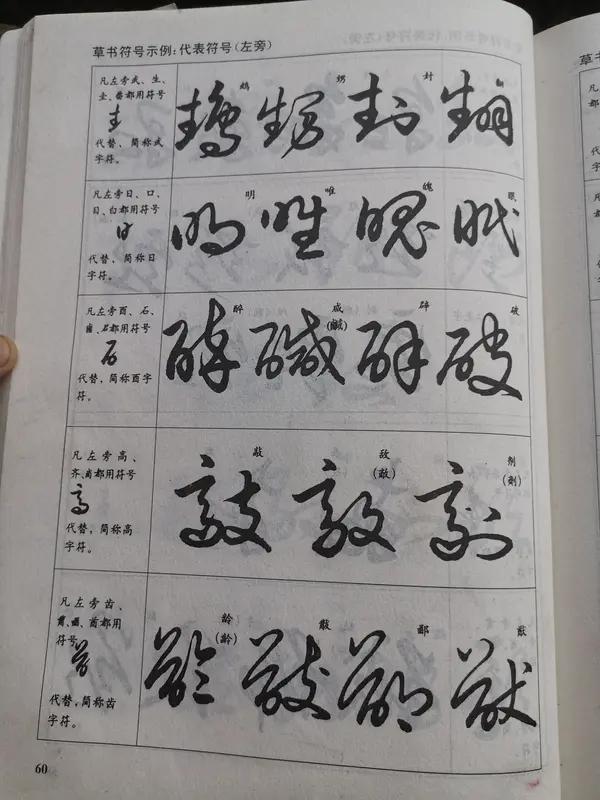 草书符号示例：代表符号（左旁）
凡左旁武、生、
圭、啬都用符号
代替，简称武
字符。
鹉 甥 封 翻
凡左旁日、口、
目、白都用符号
代替、简称日
字符。
明 唯 魄 眠
凡左旁酉、石、
都用符号
代替，简称酉字
符。
醉 碱(鹹) 辟 破
凡左旁高、
齐、啇都用符号
代替，简称高
字符。
敲 敌(敵) 剂(劑)
凡左旁齿、
都用
符号
代替，简称齿
字符。
龄(齡) 鄙 猷
60